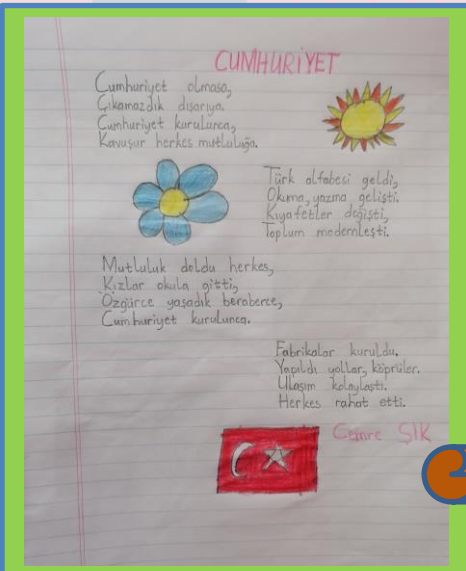 CUMHURİYET
Cumhuriyet olmasa,
Çıkamazdık dışarıya.
Cumhuriyet kurulunca,
Kavuşur herkes mutluluğa.
Türk alfabesi geldi,
Okuma, yazma gelişti.
Kıyafetler değişti,
Toplum modernleşti.
Mutluluk doldu herkes,
Kızlar okula gitti,
Özgürce yaşadık beraberce,
Cumhuriyet kurulunca.
Fabrikalar kuruldu.
Yapıldı yollar, köprüler.
Ulaşım kolaylaştı.
Herkes rahat etti.
Cemre ŞIK